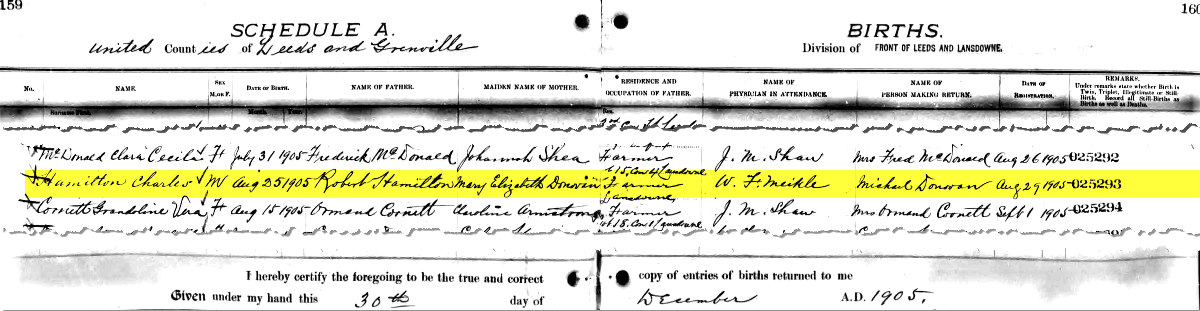 159
160
SCHEDULE A.
BIRTHS.
United Counties of Leeds and Grenville
Division of FRONT OF LEEDS AND LANSDOWNE.
No. NAME. SEX M. OR F. DATE OF BIRTH. NAME OF FATHER. MAIDEN NAME OF MOTHER. RESIDENCE AND OCCUPATION OF FATHER. NAME OF PHYSICIAN IN ATTENDANCE. NAME OF PERSON MAKING RETURN. DATE OF REGISTRATION. REMARKS. Under remarks state whether Birth is Twin, Triplet, Illegitimate or Still-Birth. Record all Still-Births as Births as well as Deaths.
McDonald Clara Cecila F July 31 1905 Frederick McDonald Johannah Shea Farmer J. M. Shaw Mrs Fred McDonald Aug 26 1905 025292
Hamilton Charles M Aug 25 1905 Robert Hamilton Mary Elizabeth Donovin Farmer Lansdowne W. F. Meikle Michael Donovan Aug 29 1905 025293
Cornett Grandoline Vera F Aug 15 1905 Ormand Cornett Caroline Armstrong Farmer J. M. Shaw Mrs Ormand Cornett Sept 1 1905 025294
I hereby certify the foregoing to be the true and correct copy of entries of births returned to me
Given under my hand this 30th day of December A.D. 1905.